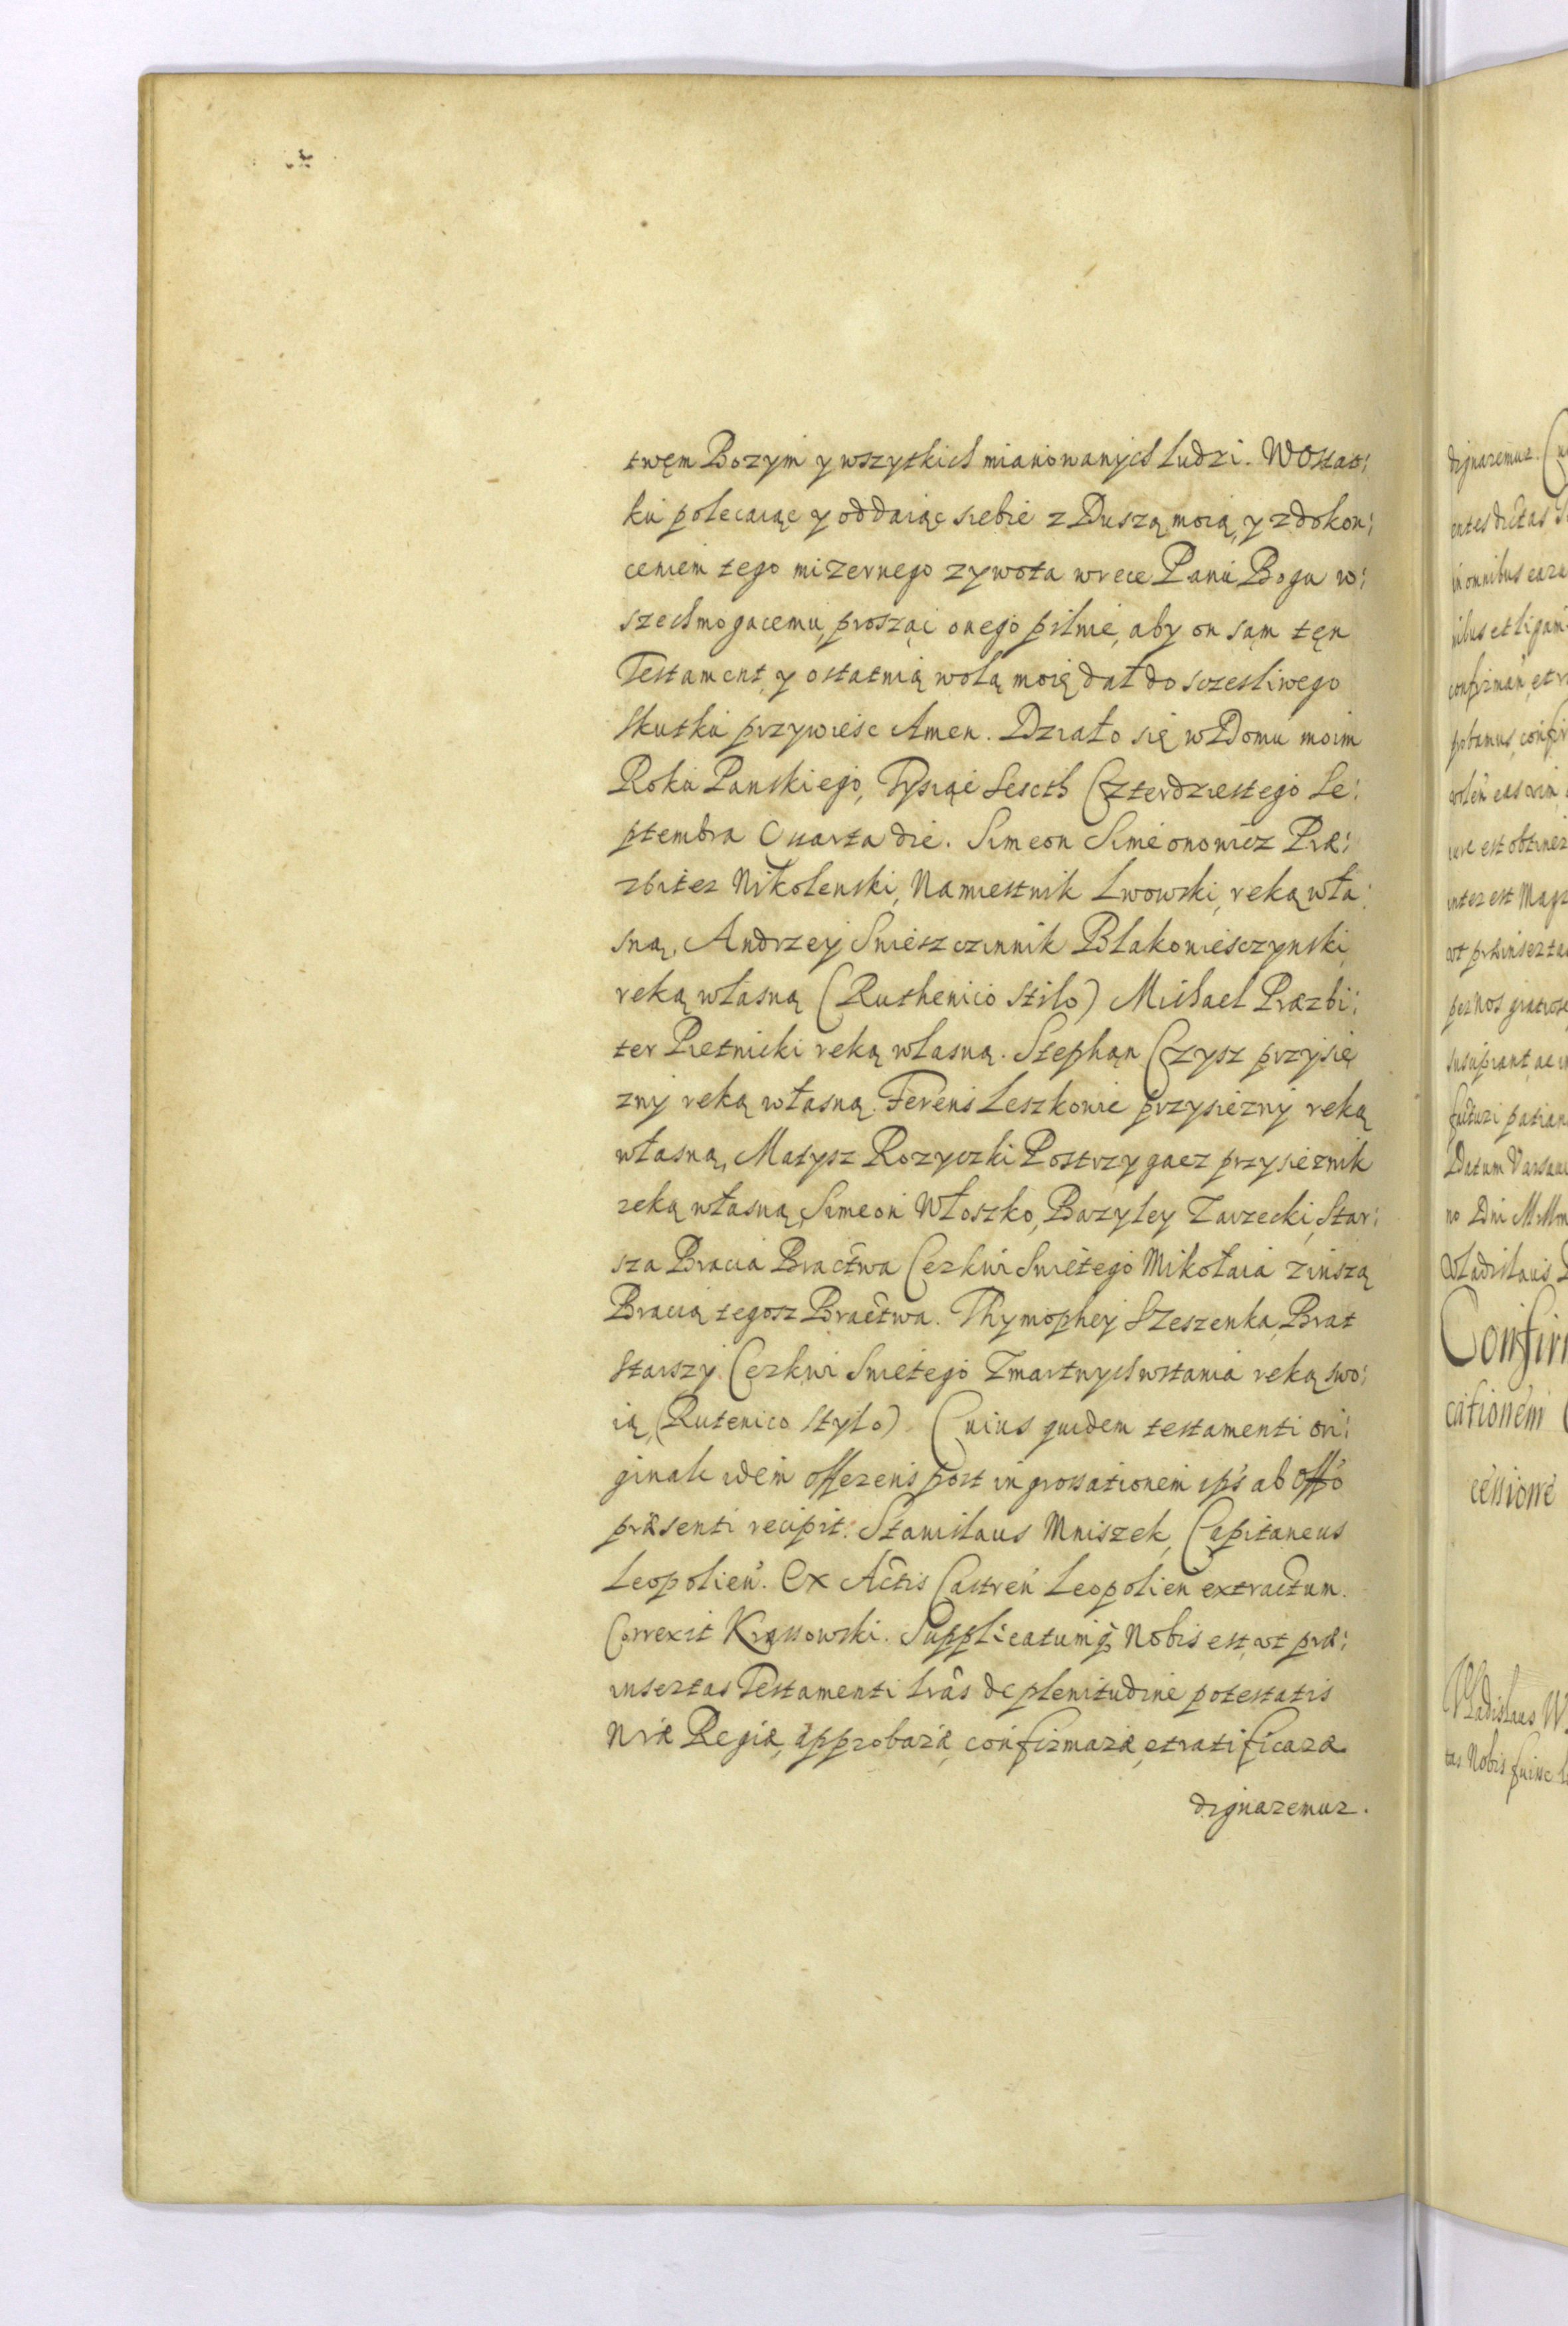 twęm Bozym y wszytkich mianowanych ludzi. W Ostat:
ku polecaiąc y oddaiąc siebie z Duszą moią, y z dokon:
ceniem tego mizernego zywota w rece Panu Bogu w:
szechmogacemu, prosząc onego pilnie, aby on sąm tęn
Testament, y ostatnią wolą moię dał do szczesliwego
skutku przywiesc Amen. Działo się w Domu moim
Roku Panskiego, Tysiąc Sescth Czterdziestego Se:
ptembra Quarta die. Simeon Simeonowicz Præ:
zbiter Nikolenski, Namiestnik Lwowski, reką wła:
sną, Andrzey Swieszczinnik Blakoniesczynski,
reką własną (Ruthenico stilo) Michael Præzbi:
ter Pietnicki reką własną. Stephąn Czysz przysię
zny reką własną. Ferens Leszkowic przysiezny reką
własną, Matysz Rozyczki Postrzygacz przysieznik
reką własną, Simeon Włoszko, Bazyley Zarzecki, Star:
sza Bracia Bractwa Cerkwi Swietego Mikołaia z inszą
Bracią tegosz Bractwa. Thymophey Szeszenka, Brat
Starszy Cerkwi Swietego Zmartwychwstania reką swo:
ią, (Rutenico Stylo) Cuius quidem testamenti ori:
ginale idem offerens post ingrossationem ips ab Offo
præsenti recipit. Stanislaus Mniszek, Capitaneus
Leopolien. Ex Actis Castren Leopolien extractum.
Correxit Krassowski. Supplicatumq3 Nobis est, ut præ:
insertas Testamenti lras de plenitudine potestatis
Nræ Regiæ, approbaræ, confirmaræ, et ratificaræ
dignaremur.
dignaremur. Cu
entes dictas
in omnibus
nibus et ligam
confirman, et
potamus, confir
volen eas
iure est obtiner
inter est
ut præinserta
per Nos gratiose
suscipiant, ac
futuri
Datum Varsavi
no Dni
Vladislaus
Confir
cationem
cessione
Vladislaus
tas Nobis fuisse